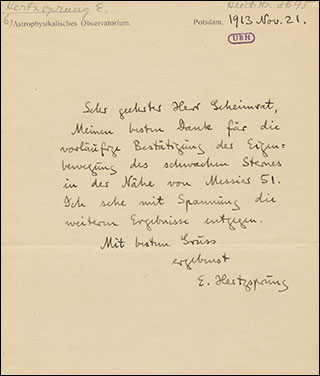 Hertzsprung E.
Astrophysikalisches Observatorium.
Potsdam, 1913 Nov. 21.
UBH
Sehr geehrter Herr Geheimrat,
Meinen besten Dank für die
vorläufige Bestätigung des Eigen=
bewegung des schwachen Sternes
in der Nähe von Messier 51.
Ich sehe mit Spannung die
weiteren Ergebnisse entgegen.
Mit bestem Gruss
ergebenst
E. Hertzsprung